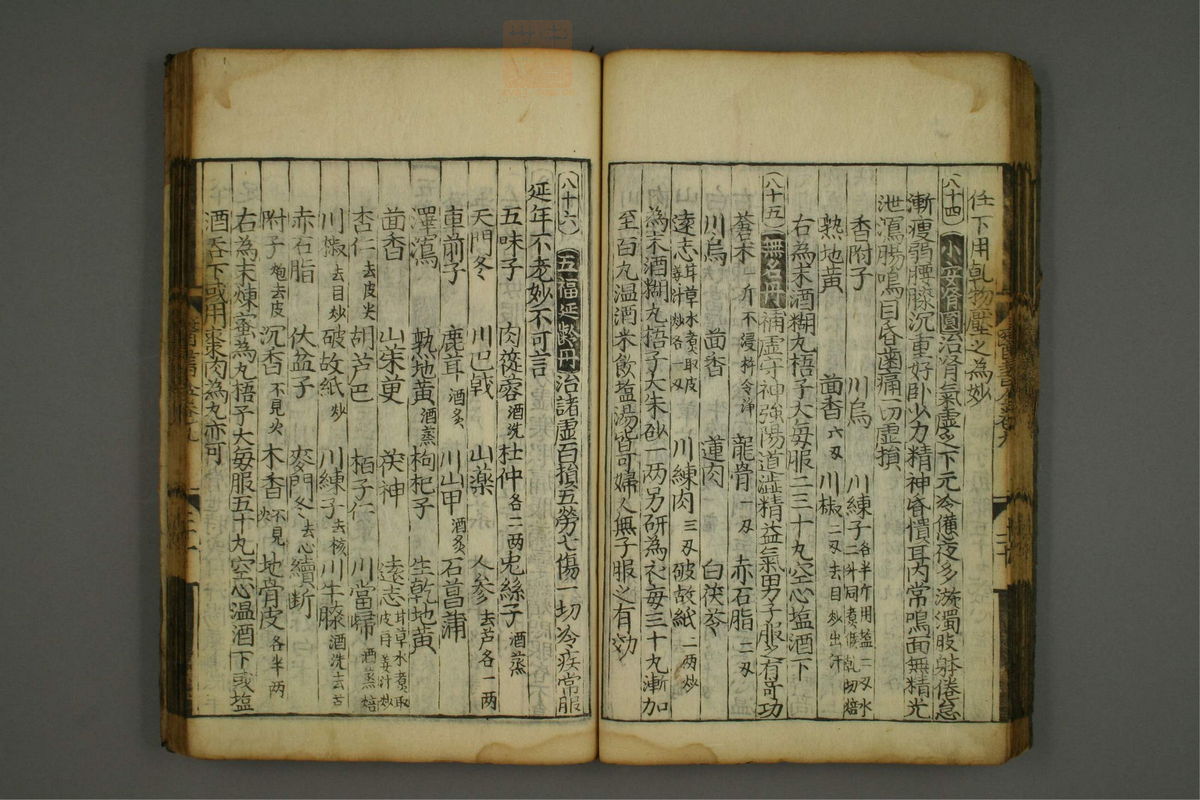 任下用乾物壓之為妙
八十四 小安腎圓 治腎氣虛乏下元冷憊夜多漩濁肢躰倦怠
漸瘦弱腰膝沉重好卧少力精神昏憒耳內常鳴面無精光
泄瀉腸鳴目昏齒痛一切虛損
香附子 川烏 川練子各半斤用盐二刄水二升同煮候乾切焙
熟地黃 茴香六刄 川椒二刄去目炒出汗
右為末酒糊丸梧子大每服二三十丸空心盐酒下
八十五 無名丹 補虛守神強陽道澁精益氣男子服之有奇功
蒼朮一斤不浸杵令淨 龍骨一刄 赤石脂二刄
川烏 茴香 蓮肉 白茯苓
遠志甘草水煮取皮姜汁炒各一刄 川練肉三刄 破故紙二两炒
為末酒糊丸梧子大朱砂一两另研為衣每三十丸漸加
至百丸溫酒米飲塩湯皆可婦人無子服之有効
八十六 五福延齡丹 治諸虛百損五勞七傷一切冷疾常服
延年不老妙不可言
五味子 肉蓯蓉酒洗 杜仲各二两 兎絲子酒蒸
天門冬 川巴戟 山藥 人參去芦各一两
車前子 鹿茸酒炙 川山甲酒炙 石菖蒲
澤瀉 熟地黃酒蒸 枸杞子 生乾地黃
茴香 山茱萸 茯神 遠志甘草水煮取皮再姜汁炒
杏仁去皮尖 胡芦巴 栢子仁 川當歸酒蒸焙
川椒去目炒 破故紙炒 川練子去核 川牛膝酒洗去苦
赤石脂 伏盆子 麥門冬去心 續斷
附子炮去皮 沉香不見火 木香不見火 地骨皮各半两
右為末煉蜜為丸梧子大每服五十丸空心溫酒下或塩
酒吞下或用棗肉為丸亦可